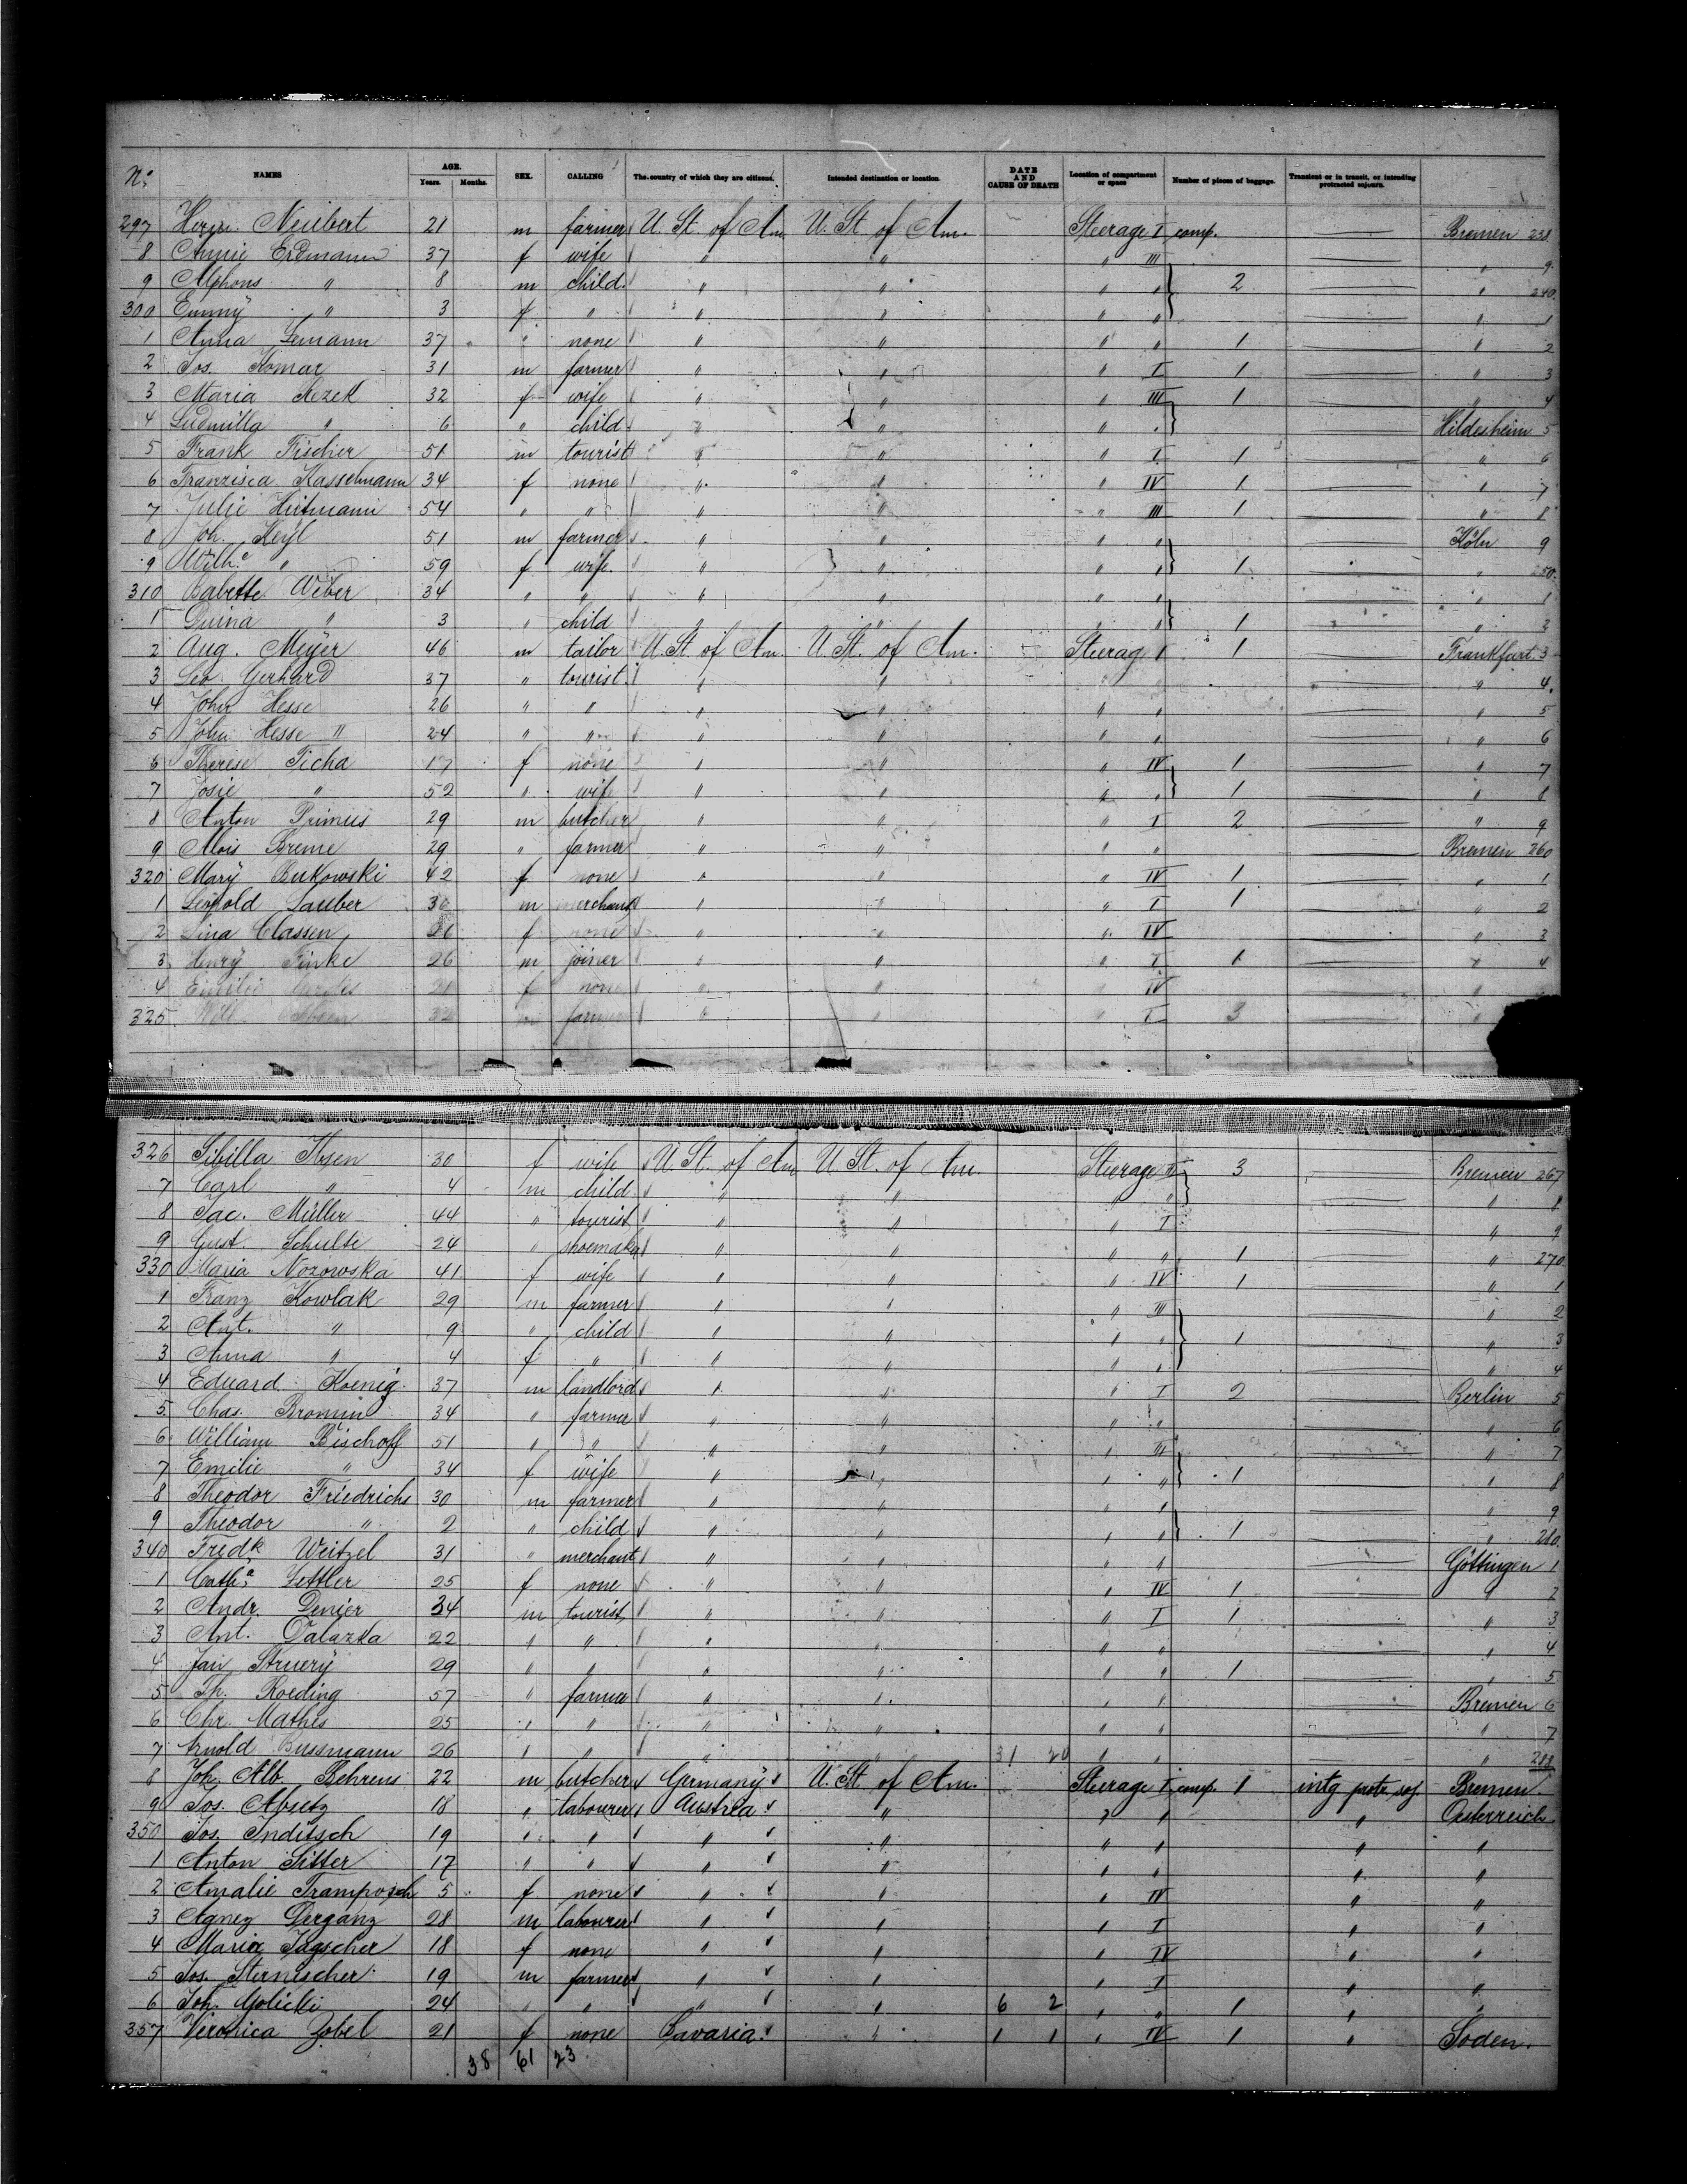 No. NAMES AGE. Years. Months. SEX. CALLING The country of which they are citizens. Intended destination or location. DATE AND CAUSE OF DEATH Location of compartment or space Number of pieces of baggage. Transient or in transit, or intending protracted sojourn.
297 Herm. Neubert 21 m farmer U. St. of Am. U. St. of Am. Steerage I comp. Bremen 238
8 Annie Erdmann 37 f wife " " " III " 9
9 Alphons " 8 m child " " " " 2 " 240
300 Emmy " 3 f " " " " " " 1
1 Anna Lemann 37 " none " " " " 1 " 2
2 Jos. Komar 31 m farmer " " " I 1 " 3
3 Maria Rezek 32 f wife " " " III 1 " 4
4 Ludmilla " 6 " child " " " " Hildesheim 5
5 Frank Fischer 51 m tourist " " " I 1 " 6
6 Franzisca Kasselmann 34 f none " " " IV 1 " 7
7 Julie Hütmann 54 " " " " " III 1 " 8
8 Joh. Keyl 51 m farmer " " " " Köln 9
9 Wilhe. " 59 f wife " " " " 1 " 250
310 Babette Weber 34 " " " " " " " 1
1 " 3 " child " " " " 1 " 2
2 Aug. Meyer 46 m tailor U. St. of Am. U. St. of Am. Steerage I 1 Frankfurt 3
3 Leo Gerhard 37 " tourist " " " " " 4
4 John Hesse 26 " " " " " " " 5
5 John Hesse " 24 " " " " " " " 6
6 Therese Ticha 17 f none " " " IV 1 " 7
7 Josie " 52 " wife " " " " 1 " 8
8 Anton Primus 29 m butcher " " " I 2 " 9
9 Alois Breme 29 " farmer " " " " Bremen 260
320 Mary Bukowski 42 f none " " " IV 1 " 1
1 Leopold Tauber 30 m merchant " " " I 1 " 2
2 Lina Classen f none " " " IV " 3
3 Henry Finke 26 m joiner " " " I 1 " 4
4 Emilie f none " " " IV "
325 Will. m farmer " " " I 3 "
326 Sibilla Ibsen 30 f wife U. St. of Am. U. St. of Am. Steerage 3 Bremen 267
7 Carl " 4 m child " " " " " 8
8 Jac. Müller 44 " tourist " " " I " 9
9 Gust. Schulte 24 " shoemaker " " " " 1 " 270
330 Maria Nozowska 41 f wife " " " IV 1 " 1
1 Franz Kowlak 29 m farmer " " " III " 2
2 Ant. " 9 " child " " " " 1 " 3
3 Anna " 4 f " " " " " " 4
4 Eduard Koenig 37 m landlord " " " I 2 Berlin 5
5 Chas. Bromin 34 " farmer " " " " " 6
6 William Bischoff 51 " " " " " III " 7
7 Emilie " 34 f wife " " " " 1 " 8
8 Theodor Friedrichs 30 m farmer " " " " " 9
9 Theodor " 2 " child " " " " 1 " 280
340 Fredk Weitzel 31 " merchant " " " " Göttingen 1
1 Catha. Zettler 25 f none " " " IV 1 " 2
2 Andr. Denier 34 m tourist " " " I 1 " 3
3 Ant. Valazka 22 " " " " " " " 4
4 Jan Struery 29 " " " " " " 1 " 5
5 Th. Roeding 57 " farmer " " " " Bremen 6
6 Chr. Mathes 25 " " " " " " " 7
7 Arnold Bussmann 26 " " " " 31 20 " " " 288
8 Joh. Alb. Behrens 22 m butcher Germany U. St. of Am. Steerage I comp. 1 intg protr. soj. Bremen.
9 Jos. Absetz 18 " labourer Austria " " " " Oesterreich
350 Jos. Inditsch 19 " " " " " " " "
1 Anton Sitter 17 " " " " " " " "
2 Amalie Tramposch 5 f none " " " IV " "
3 Agnez Derganz 28 m labourer " " " I " "
4 Maria Jagscher 18 f none " " " IV " "
5 Jos. Sternischer 19 m farmer " " " I " "
6 Joh. Golicki 24 " " " " 6 2 " " 1 " "
357 Veronica Zobel 21 f none Bavaria " 1 1 " IV 1 " Soden.
38 61 23